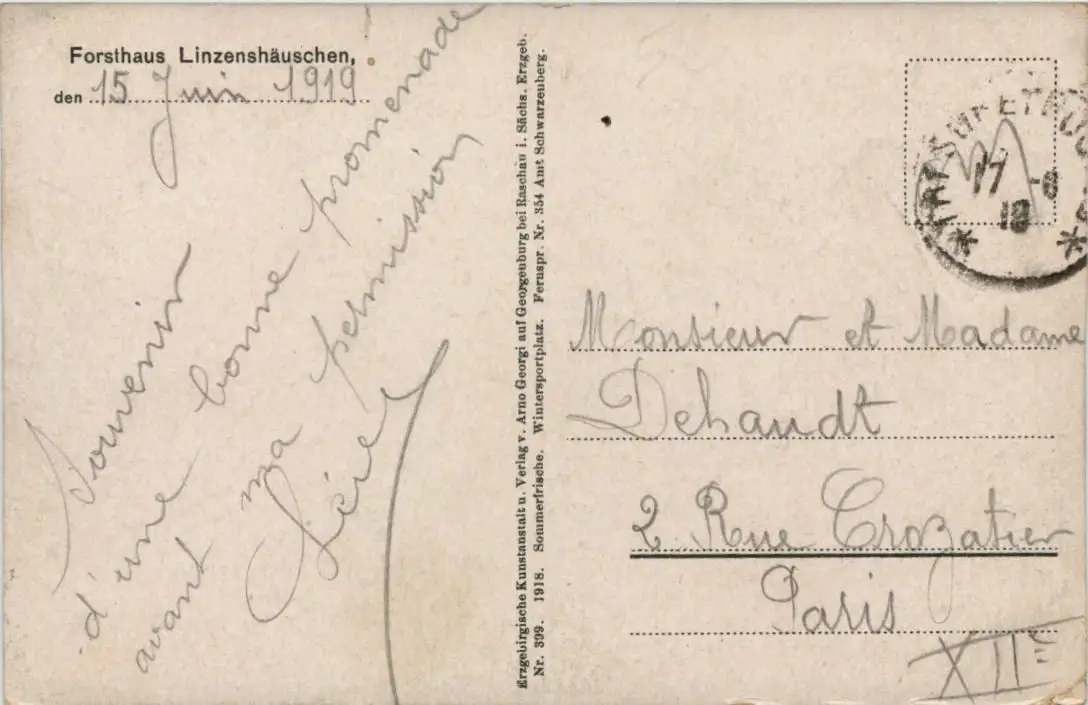 Forsthaus Linzenshäuschen,
den 15 Juin 1919
Souvenir
d'une bonne promenade
avant ma permission
Erzgebirgische Kunstanstalt u. Verlag v. Arno Georgi auf Georgenburg bei Raschau i. Sächs. Erzgeb.
Nr. 399. 1918. Sommerfrische. Wintersportplatz. Fernspr. Nr. 354 Amt Schwarzenberg.
17 -6
19
Monsieur et Madame
Dehandt
2 Rue Crozatier
Paris
XIIe